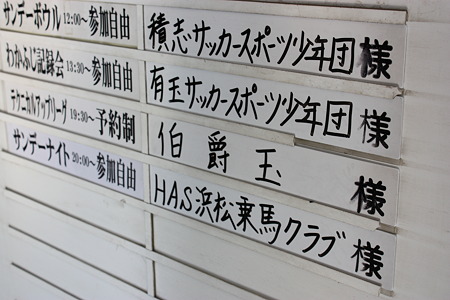 サンデーボウル 12:00～ 参加自由
わかふじ記録会 13:30～ 参加自由
テクニカルアップリーグ 19:30～ 予約制
サンデーナイト 20:00～ 参加自由
積志サッカースポーツ少年団 様
有玉サッカースポーツ少年団 様
伯爵玉 様
HAS浜松乗馬クラブ 様